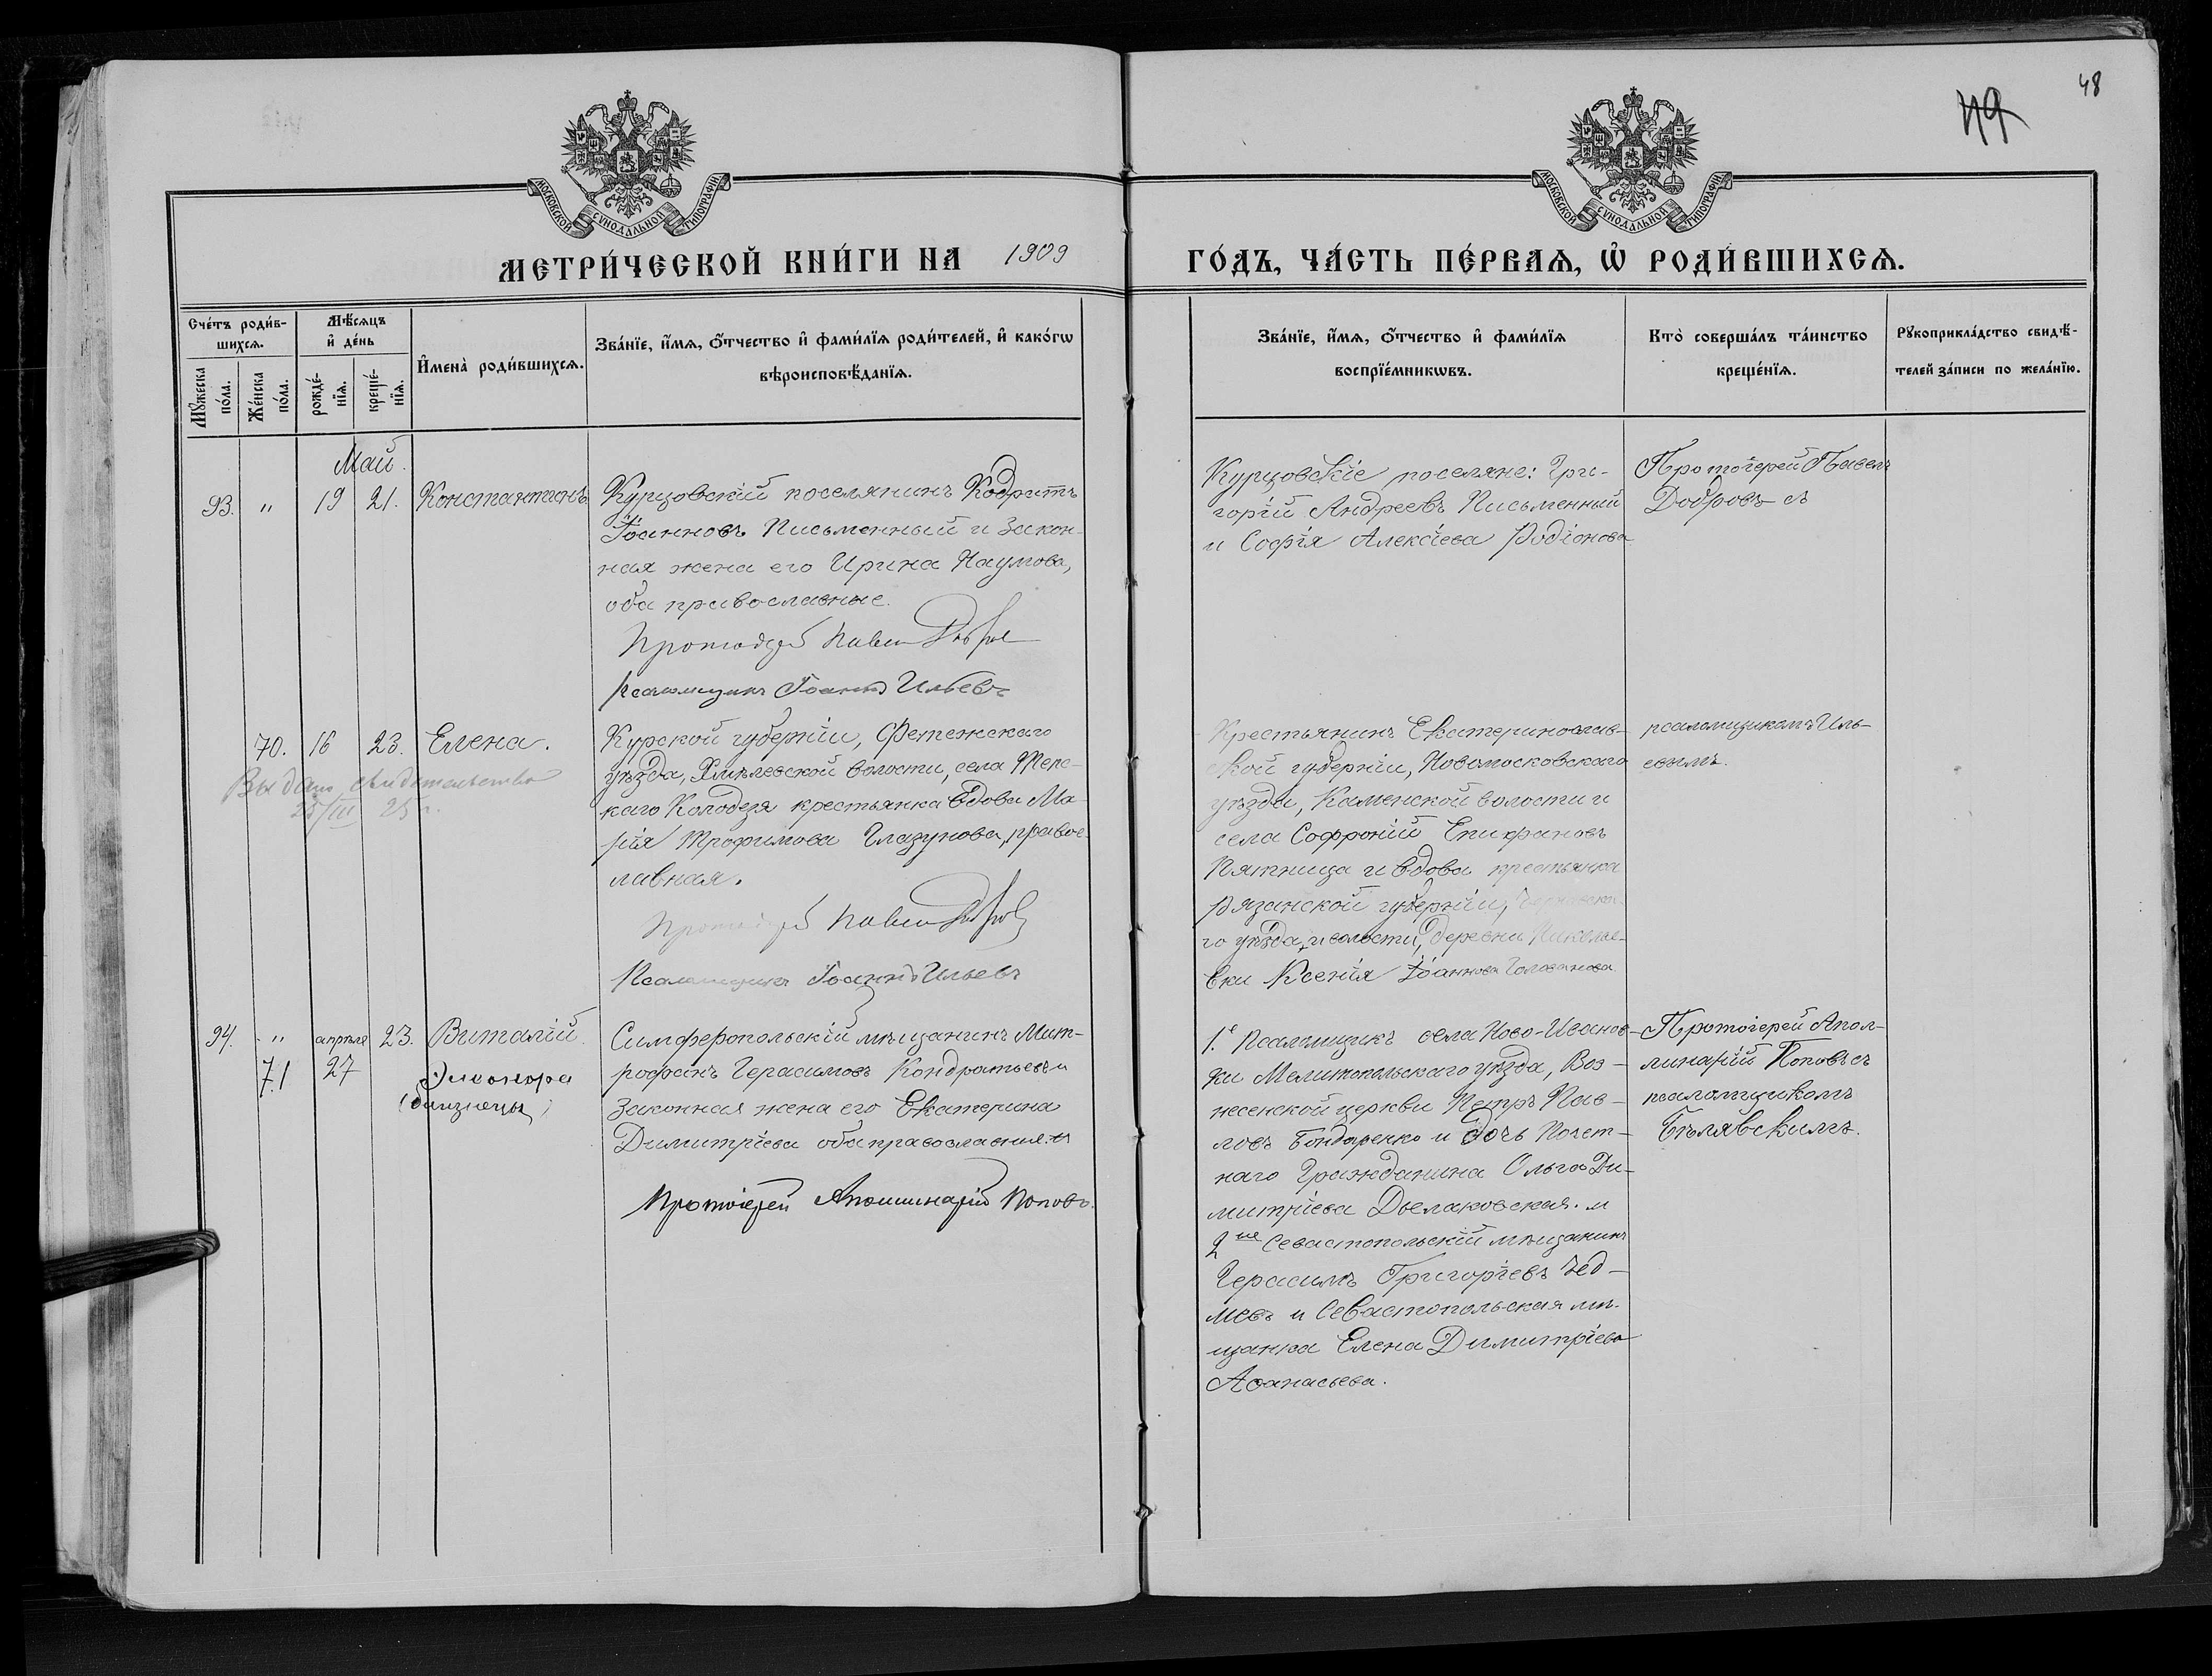 48
49
МОСКОВСКОЙ СѴНОДАЛЬНОЙ ТИПОГРАФІИ
МОСКОВСКОЙ СѴНОДАЛЬНОЙ ТИПОГРАФІИ
МЕТРИ́ЧЕСКОЙ КНИ́ГИ НА 1909
ГО́ДЪ, ЧА́СТЬ ПЕ́РВАѦ, Ѡ҆ РОДИ́ВШИХСѦ.
Сче́тъ роди́в-
шихсѧ.
Мꙋ́жеска
по́ла.
Же́нска
по́ла.
Мѣ́сѧцъ
и҆ де́нь
рожде́-
нїѧ.
креще́-
нїѧ.
И҆мена̀ роди́вшихсѧ.
Зва́нїе, и҆́мѧ, ѻ҆́тчество и҆ фами́лїѧ роди́телей, и҆ како́гѡ
вѣроисповѣ́данїѧ.
Зва́нїе, и҆́мѧ, ѻ҆́тчество и҆ фами́лїѧ
воспрїе́мникѡвъ.
Кто̀ соверша́лъ та́инство
креще́нїѧ.
Рꙋкоприкла́дство свидѣ́-
телей за́писи по жела́нїю.
Май.
93. " 19 21. Константинъ
Курцовскій поселянинъ Кодратъ
Іоанновъ Письменный и закон-
ная жена его Ирина Наумова,
оба православные.
Протоіерей Павелъ Добровъ
Псаломщикъ Іоаннъ Ильевъ
Курцовскіе поселяне: Гри-
горій Андреевъ Письменный
и Софія Алексіева Родіонова
Протоіерей Павелъ
Добровъ съ
70. 16 23. Елена.
Выдано свидетельство
25/III 25 г.
Курской губерніи, Фатежскаго
уѣзда, Хмѣлевской волости, села
каго Колодезя крестьянка вдова Ма-
рія Трофимова Глазунова, правос-
лавная.
Протоіерей Павелъ Добровъ
Псаломщикъ Іоаннъ Ильевъ
Крестьянинъ Екатеринослав-
ской губерніи, Новомосковскаго
уѣзда, Каменской волости и
села Софроній Епифановъ
Пятница и вдова крестьянка
Рязанской губерніи,
го уѣзда, и волости, деревни
вки Ксенія Іоаннова Голованова
псаломщикомъ Иль-
евымъ.
94. " апрѣля 23. Виталій.
71 27 Элеонора
(близнецы)
Симферопольскій мѣщанинъ Мит-
рофанъ Герасимовъ Кондратьевъ и
законная жена его Екатерина
Димитріева оба православные.
Протоіерей Аполлинарій Поповъ.
1.е Псаломщикъ села Ново-Иванов-
ки Мелитопольскаго уѣзда, Воз-
несенской церкви Петръ Пав-
ловъ Бондаренко и дочь Почет-
наго Гражданина Ольга Ди-
митріева и
2ые Севастопольскій мѣщанинъ
Герасимъ Григорьевъ
и Севастопольская мѣ-
щанка Елена Димитріева
Аѳанасьева.
Протоіерей Апол-
линарій Поповъ съ
псаломщикомъ
Бѣлявскимъ.